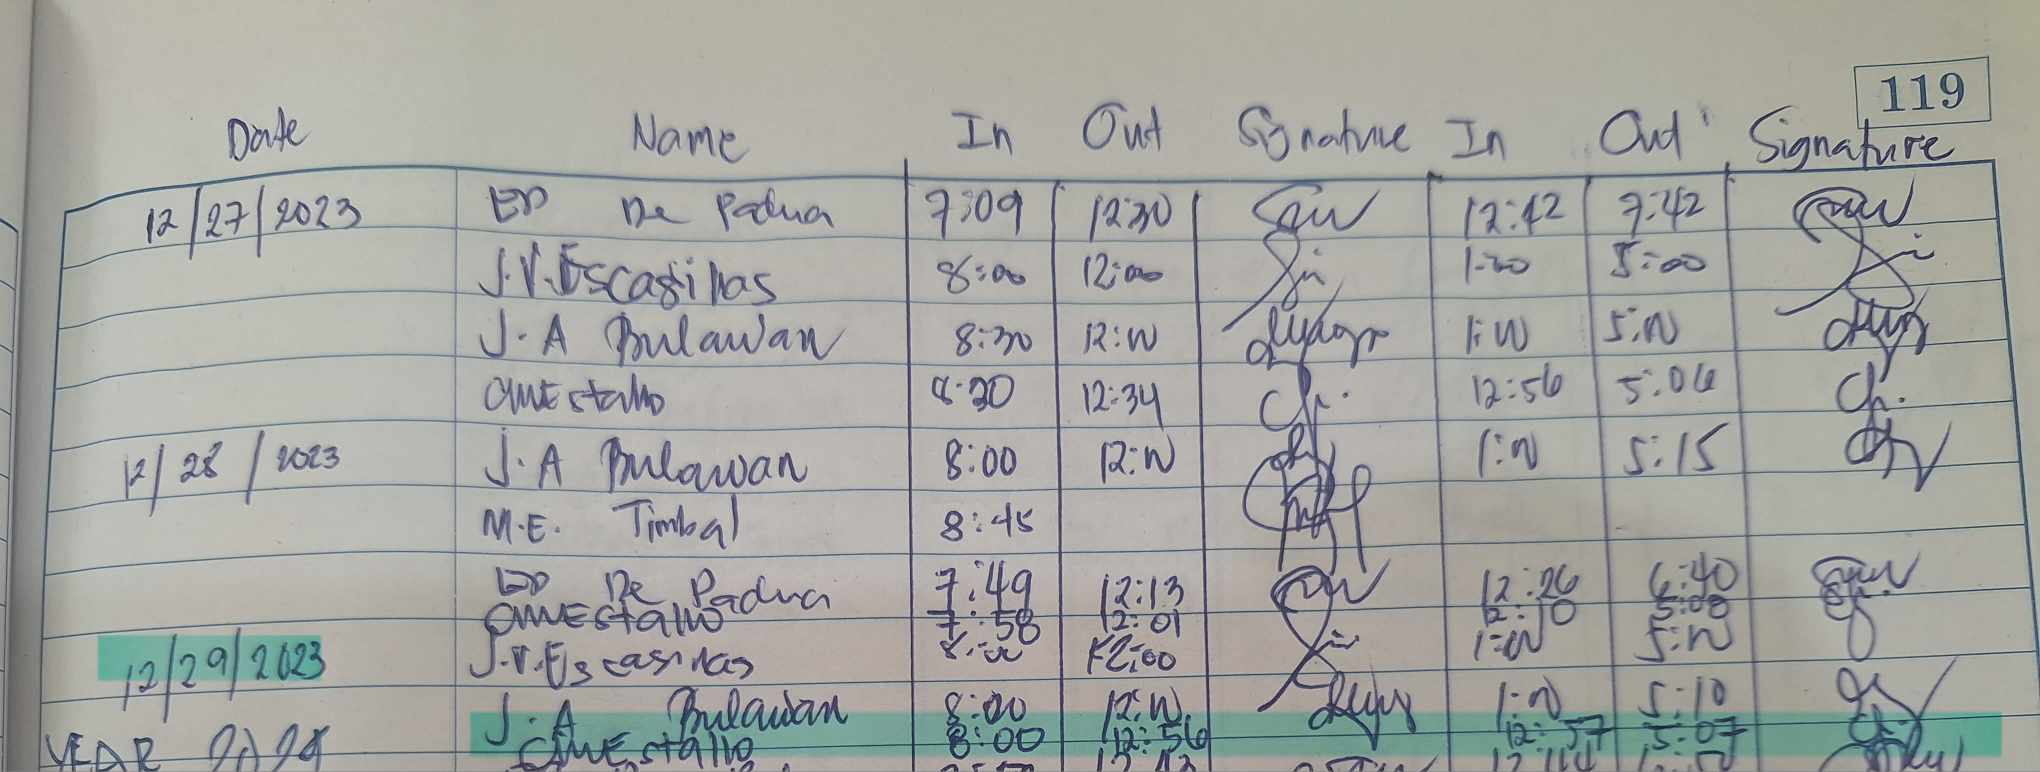 119
Date Name In Out Signature In Out Signature
12/27/2023 ED De Padua 7:09 12:30 12:42 7:42
J.V. Escasinas 8:00 12:00 1:00 5:00
J.A Bulawan 8:30 12:00 1:00 5:00
CAMEstallo 8:20 12:34 12:56 5:06
12/28/2023 J.A Bulawan 8:00 12:00 1:00 5:15
M.E. Timbal 8:45
ED De Padua 7:49 12:13 12:26 6:40
CAMEstallo 7:58 12:01 12:10 5:08
12/29/2023 J.V. Escasinas 8:00 12:00 1:00 5:00
J.A Bulawan 8:00 12:00 1:00 5:10
CAMEstallo 8:00 12:56 12:57 5:07
YEAR 2024